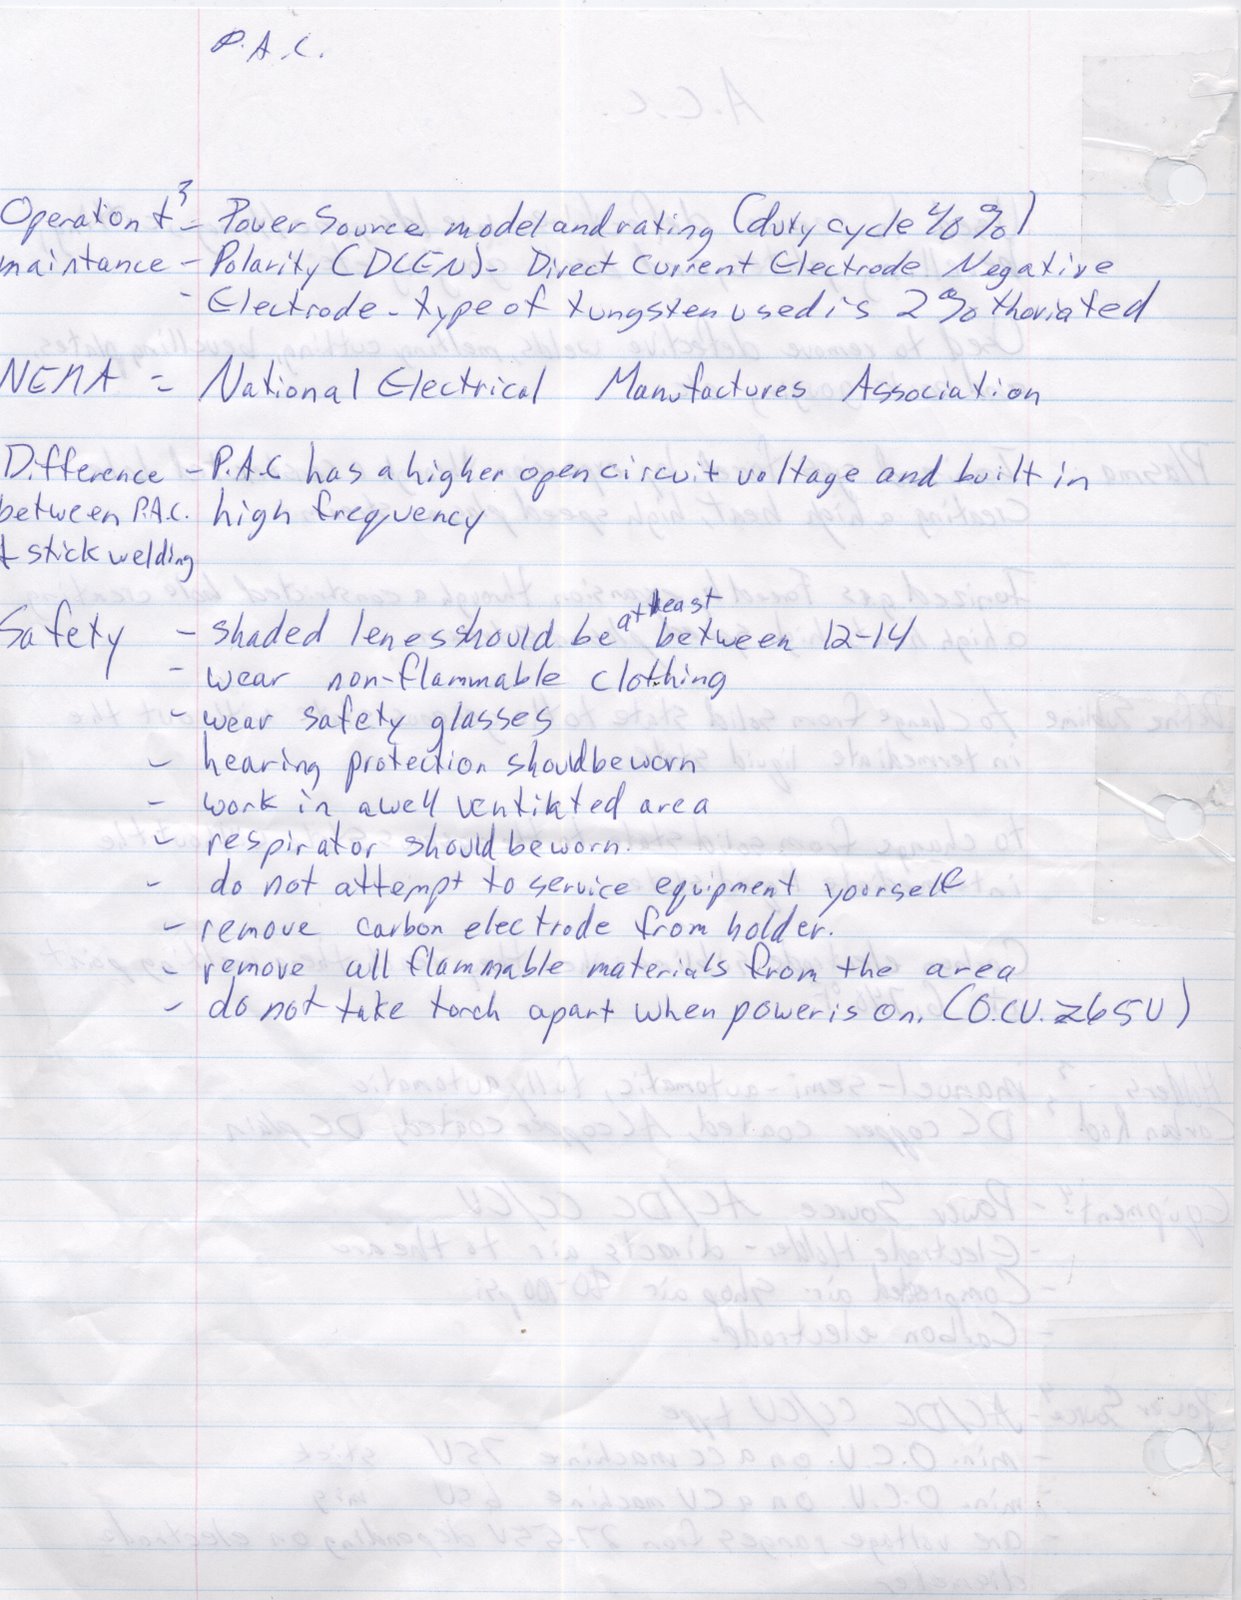 P.A.C.
Operation + 3 - Power Source model and rating (duty cycle 40%)
maintance - Polarity (DCEN) - Direct Current Electrode Negative
- Electrode - type of tungsten used is 2% thoriated
NEMA = National Electrical Manufactures Association
Difference - P.A.C has a higher open circuit voltage and built in
between P.A.C. high frequency
+ stick welding
Safety - shaded lenes should be at least between 12-14
- wear non-flammable clothing
- wear safety glasses
- hearing protection should be worn
- work in a well ventilated area
- respirator should be worn.
- do not attempt to service equipment yourself
- remove carbon electrode from holder.
- remove all flammable materials from the area
- do not take torch apart when power is on. (O.C.V. 265V)